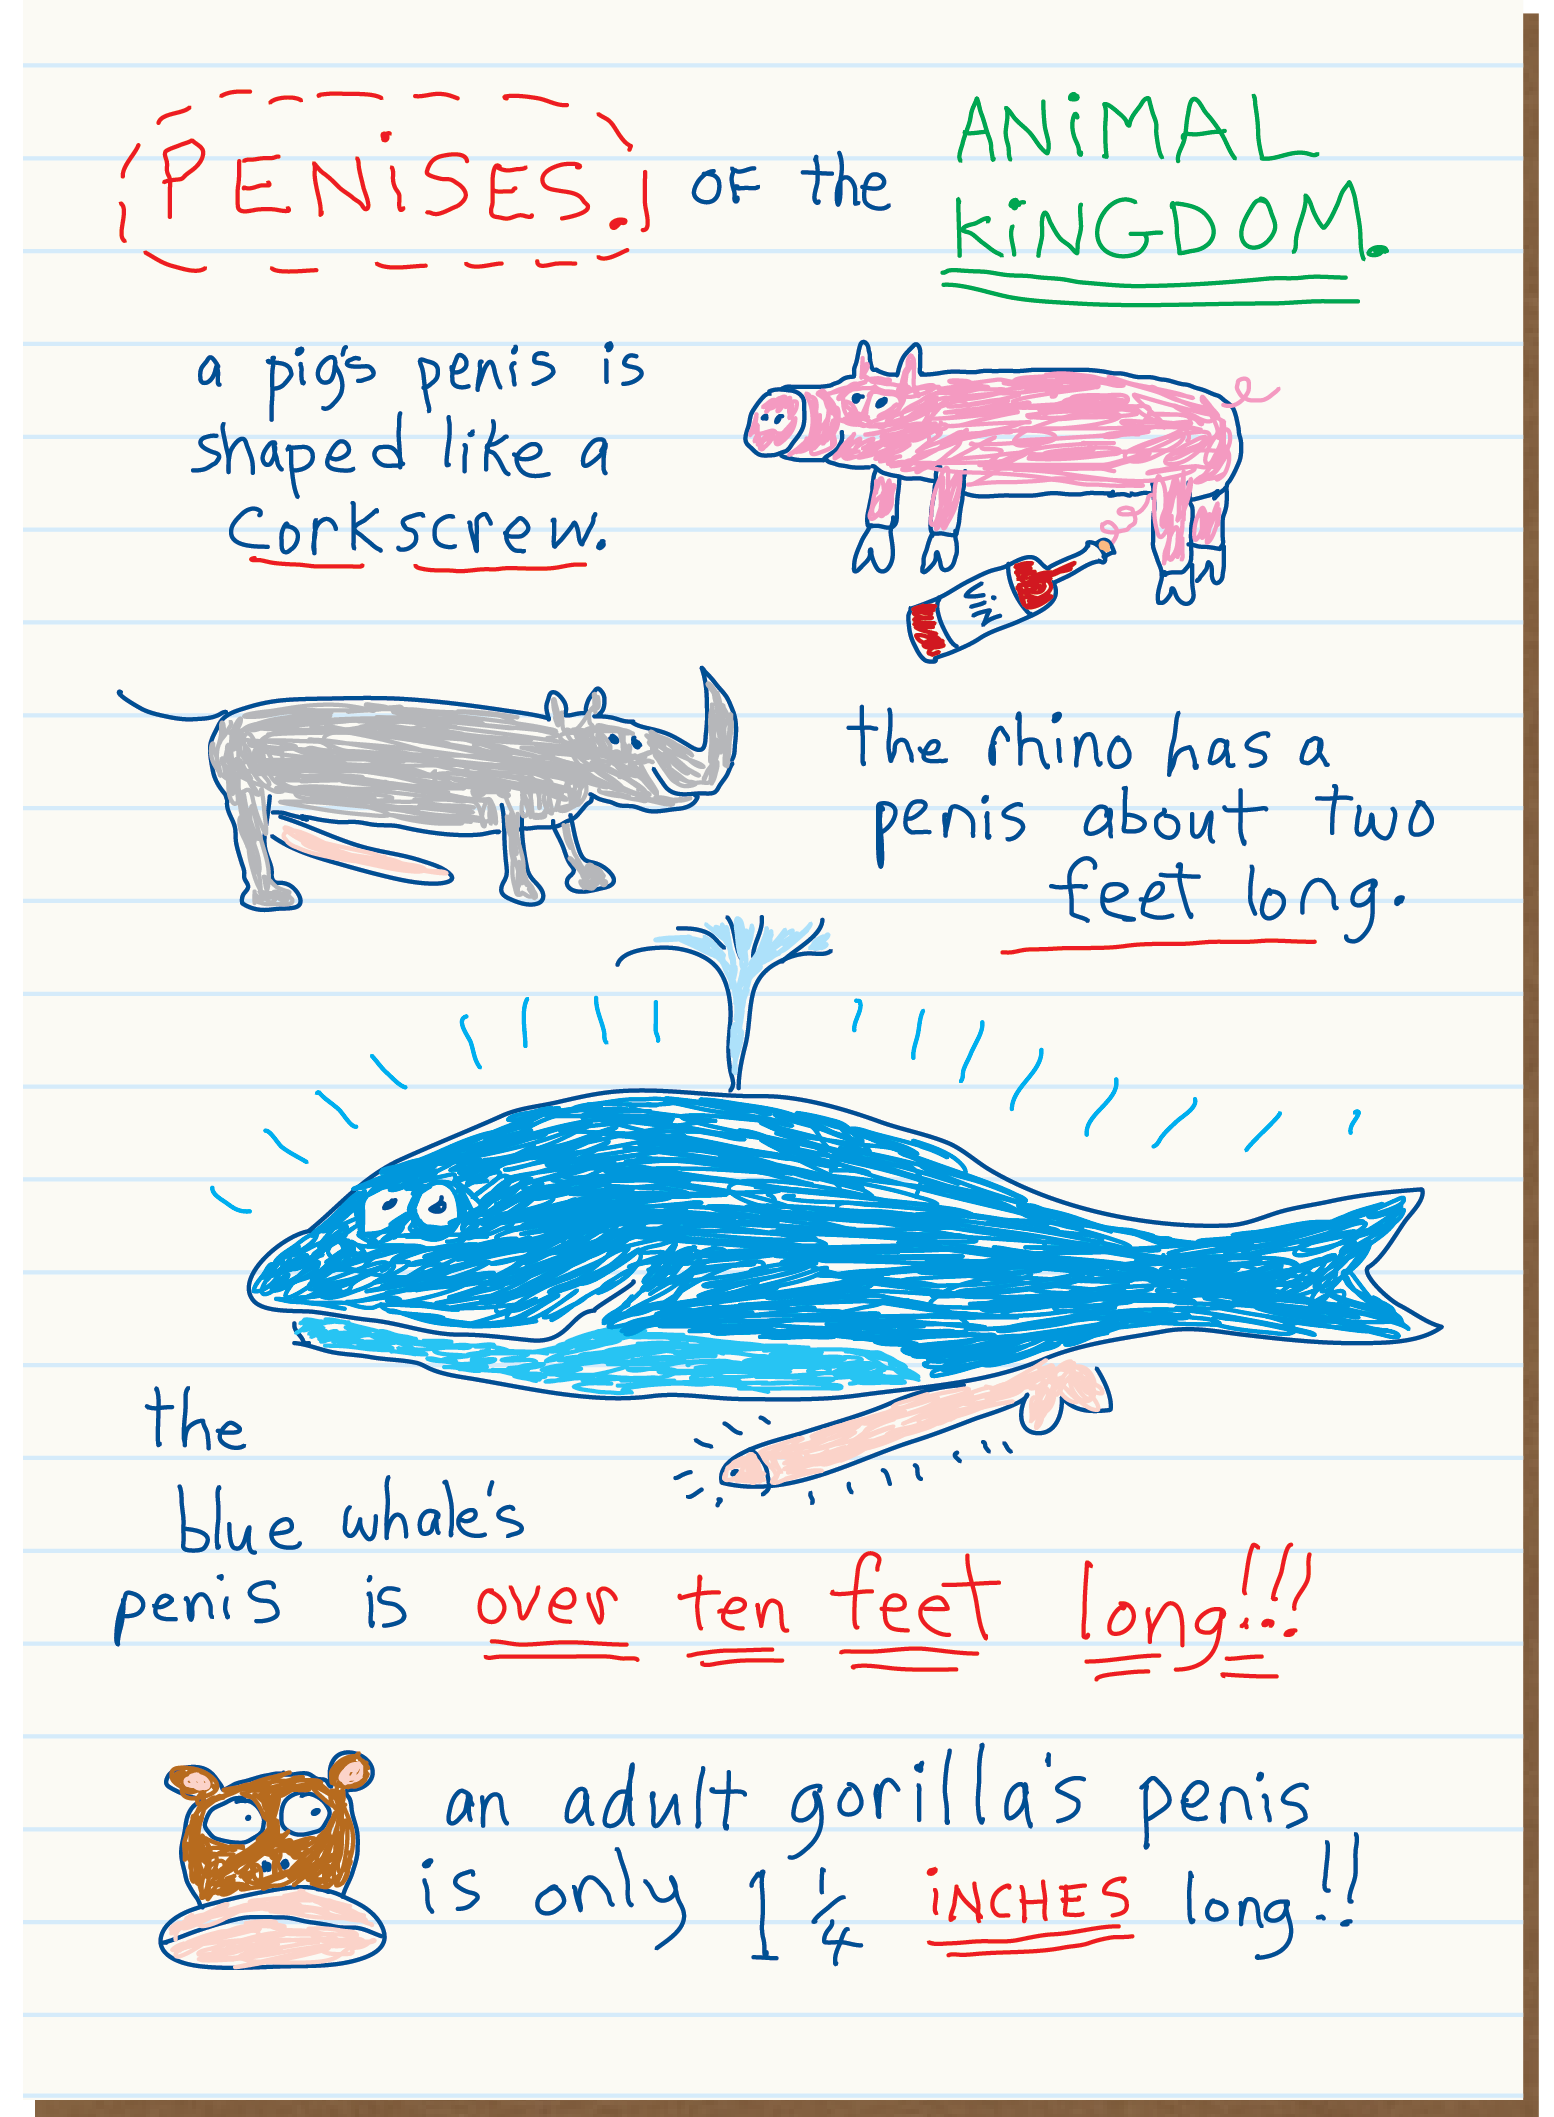 PENiSES. OF the ANiMAL
KiNGDOM.
a pig's penis is
shaped like a
corkscrew.
ViN
the rhino has a
penis about two
feet long.
the
blue whale's
penis is over ten feet long!!!
an adult gorilla's penis
is only 1 1/4 iNCHES long!!